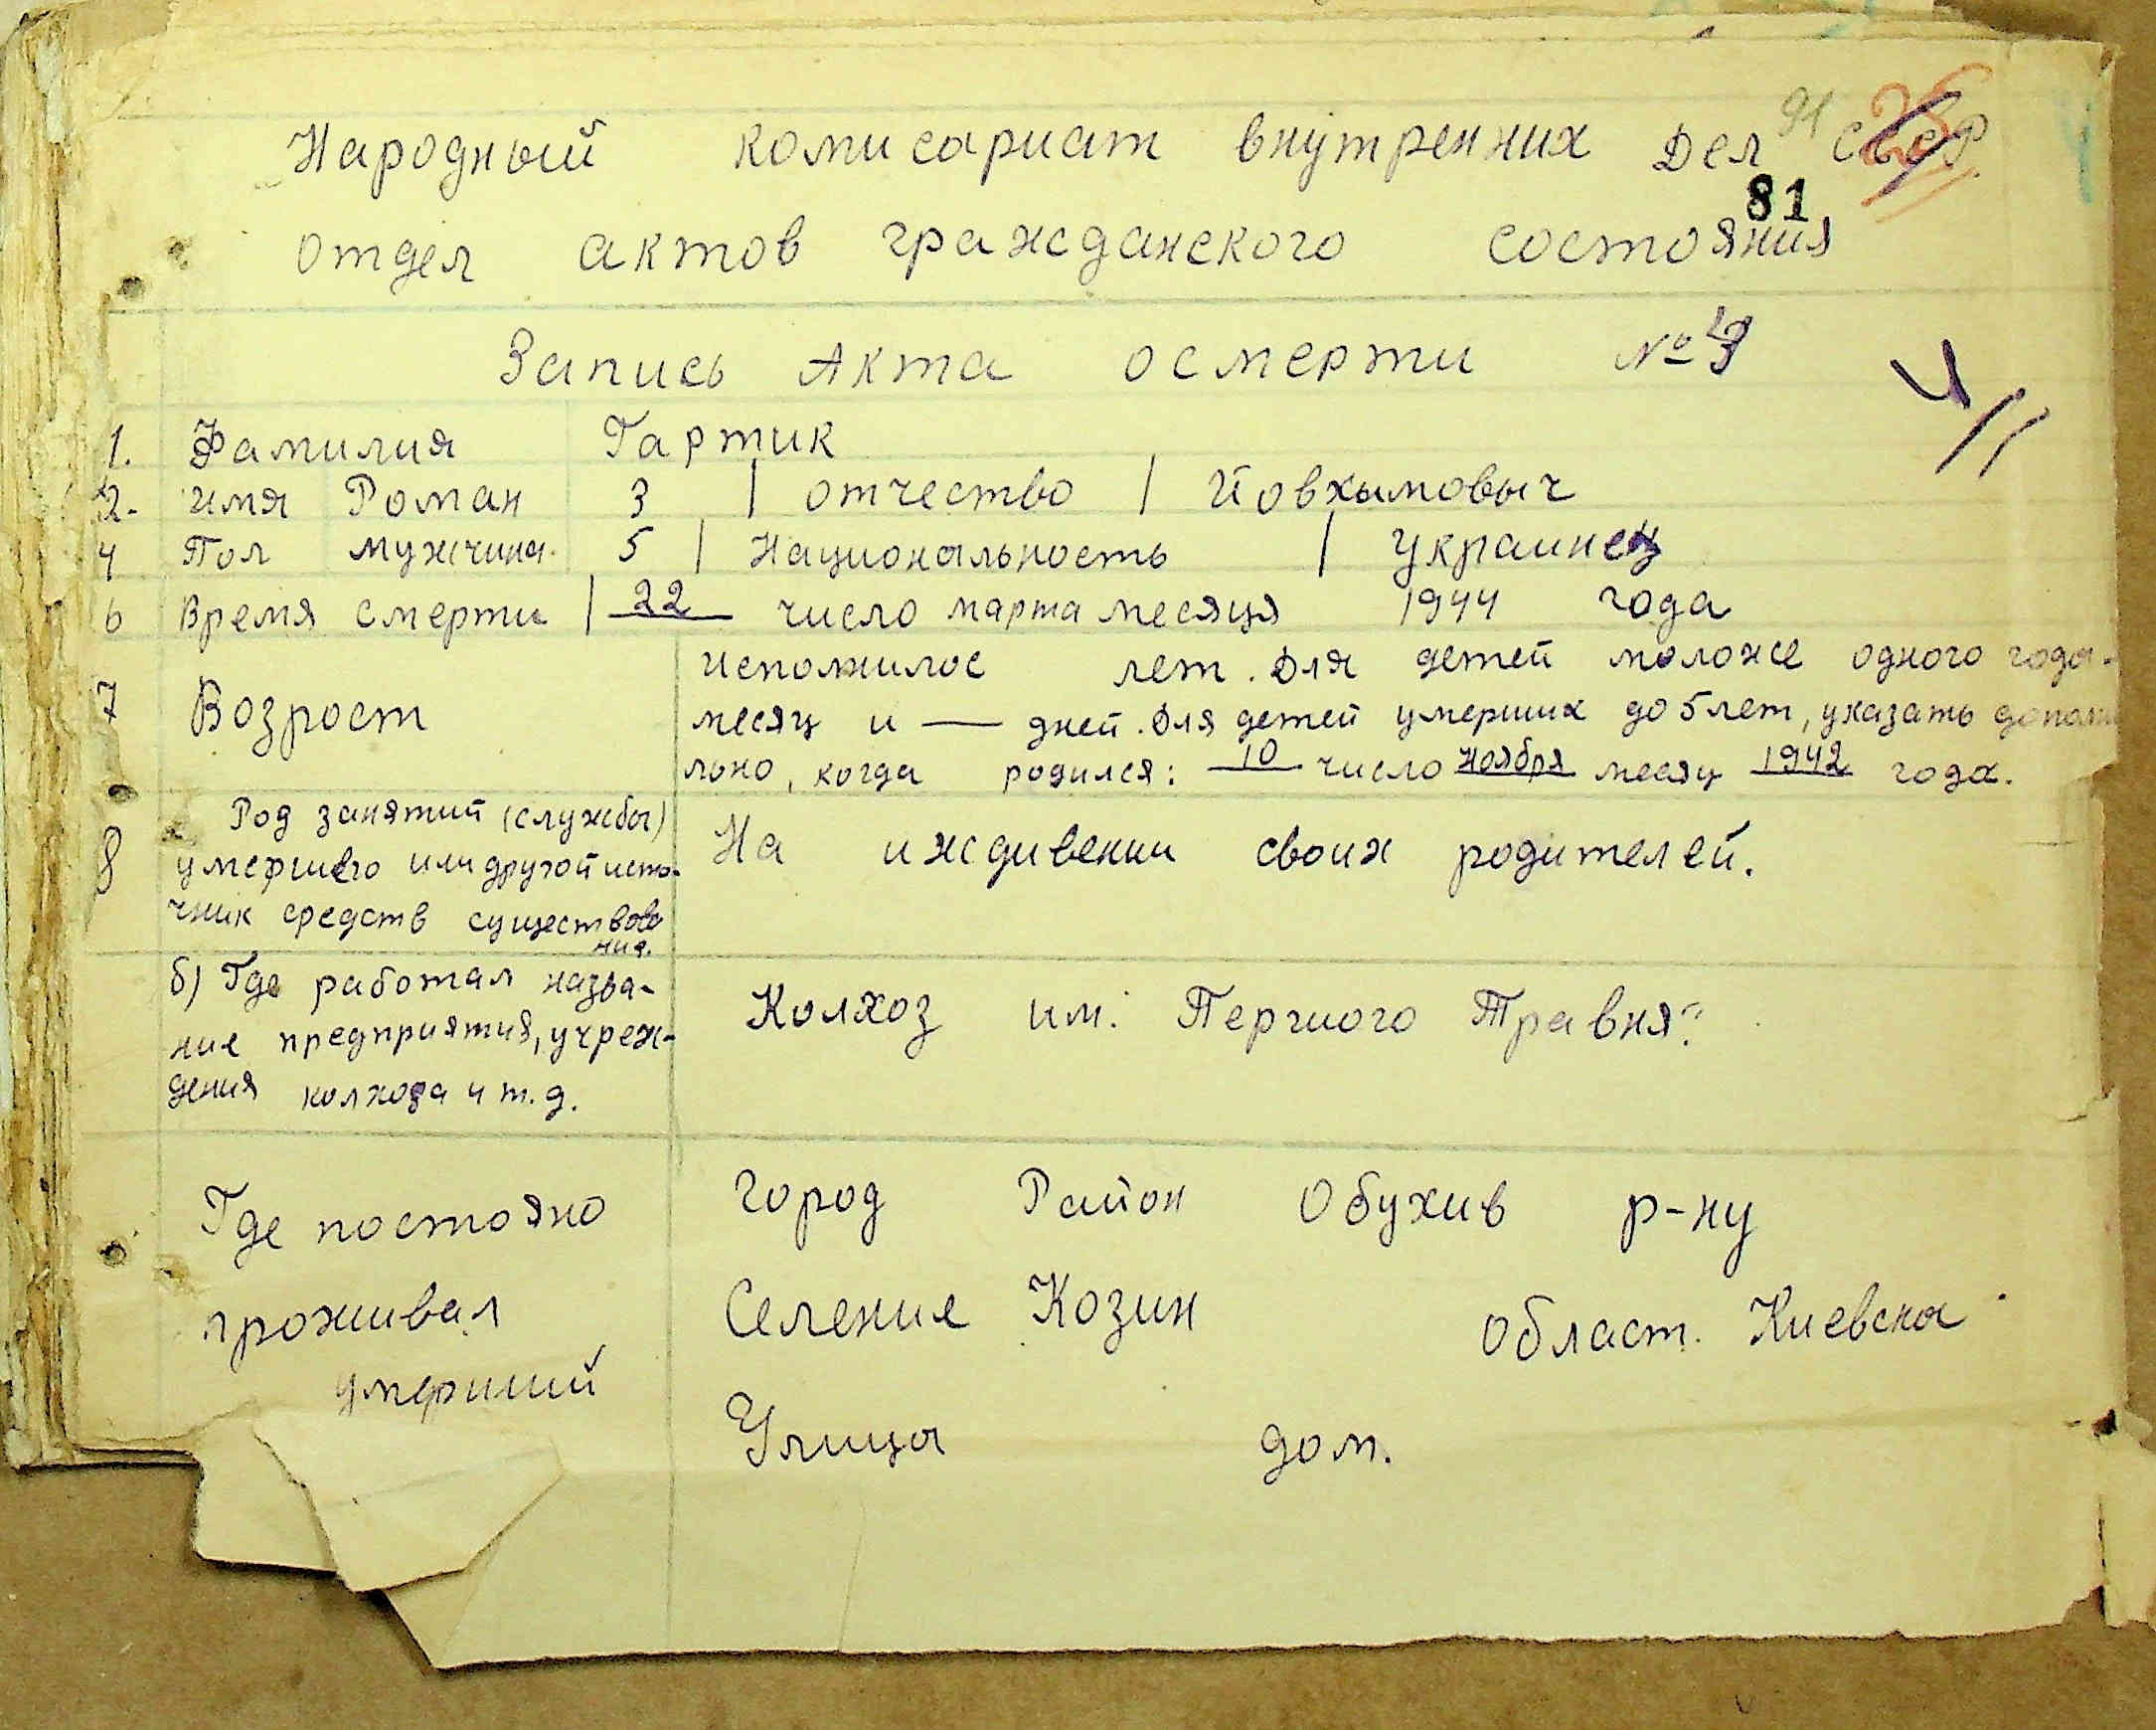 91
Народный комисариат внутренних Дел СССР.
81
отдел актов гражданского состояния
Запись Акта о смерти №
1. Фамилия Гартик
2. имя Роман 3 | отчество | Йовхымовыч
4 Пол мужчина. 5 | Национальность | украинец
6 Время смерти | 22 число марта месяця 1944 года
7 Возрост
исполнилос лет. Для детей моложе одного года.
месяц и — дней. Для детей умерших до 5 лет, указать дополни
льно, когда родился: 10 число Ноября месяц 1942 года.
8 Род занятий (службы)
умершего или другой исто-
чник средств существова
ния.
На иждивении своих родителей.
б) Где работал назва-
ние предприятия, учреж-
дения колхоза и т.д.
Колхоз им. Першого Травня"
Где постояно
проживал
умерший
город Район Обухив р-ну
Селение Козин Област. Киевска
Улица дом.